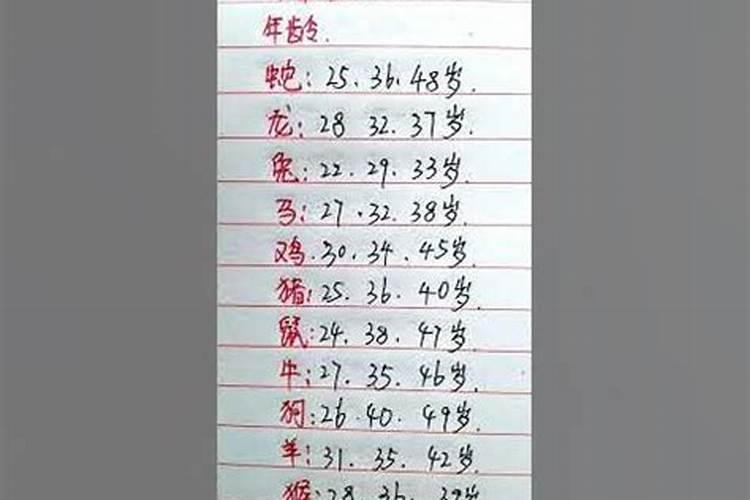 年龄.
蛇: 25. 36. 48岁.
龙: 28 32. 37岁.
兔: 22. 29. 33岁.
马: 27. 32. 38岁.
鸡. 30. 34. 45岁.
猪: 25. 36. 40岁.
鼠: 24. 38. 47岁.
牛: 27. 35. 46岁.
狗: 26. 40. 49岁.
羊: 31. 35. 42岁.
猴: 28. 36. 39岁